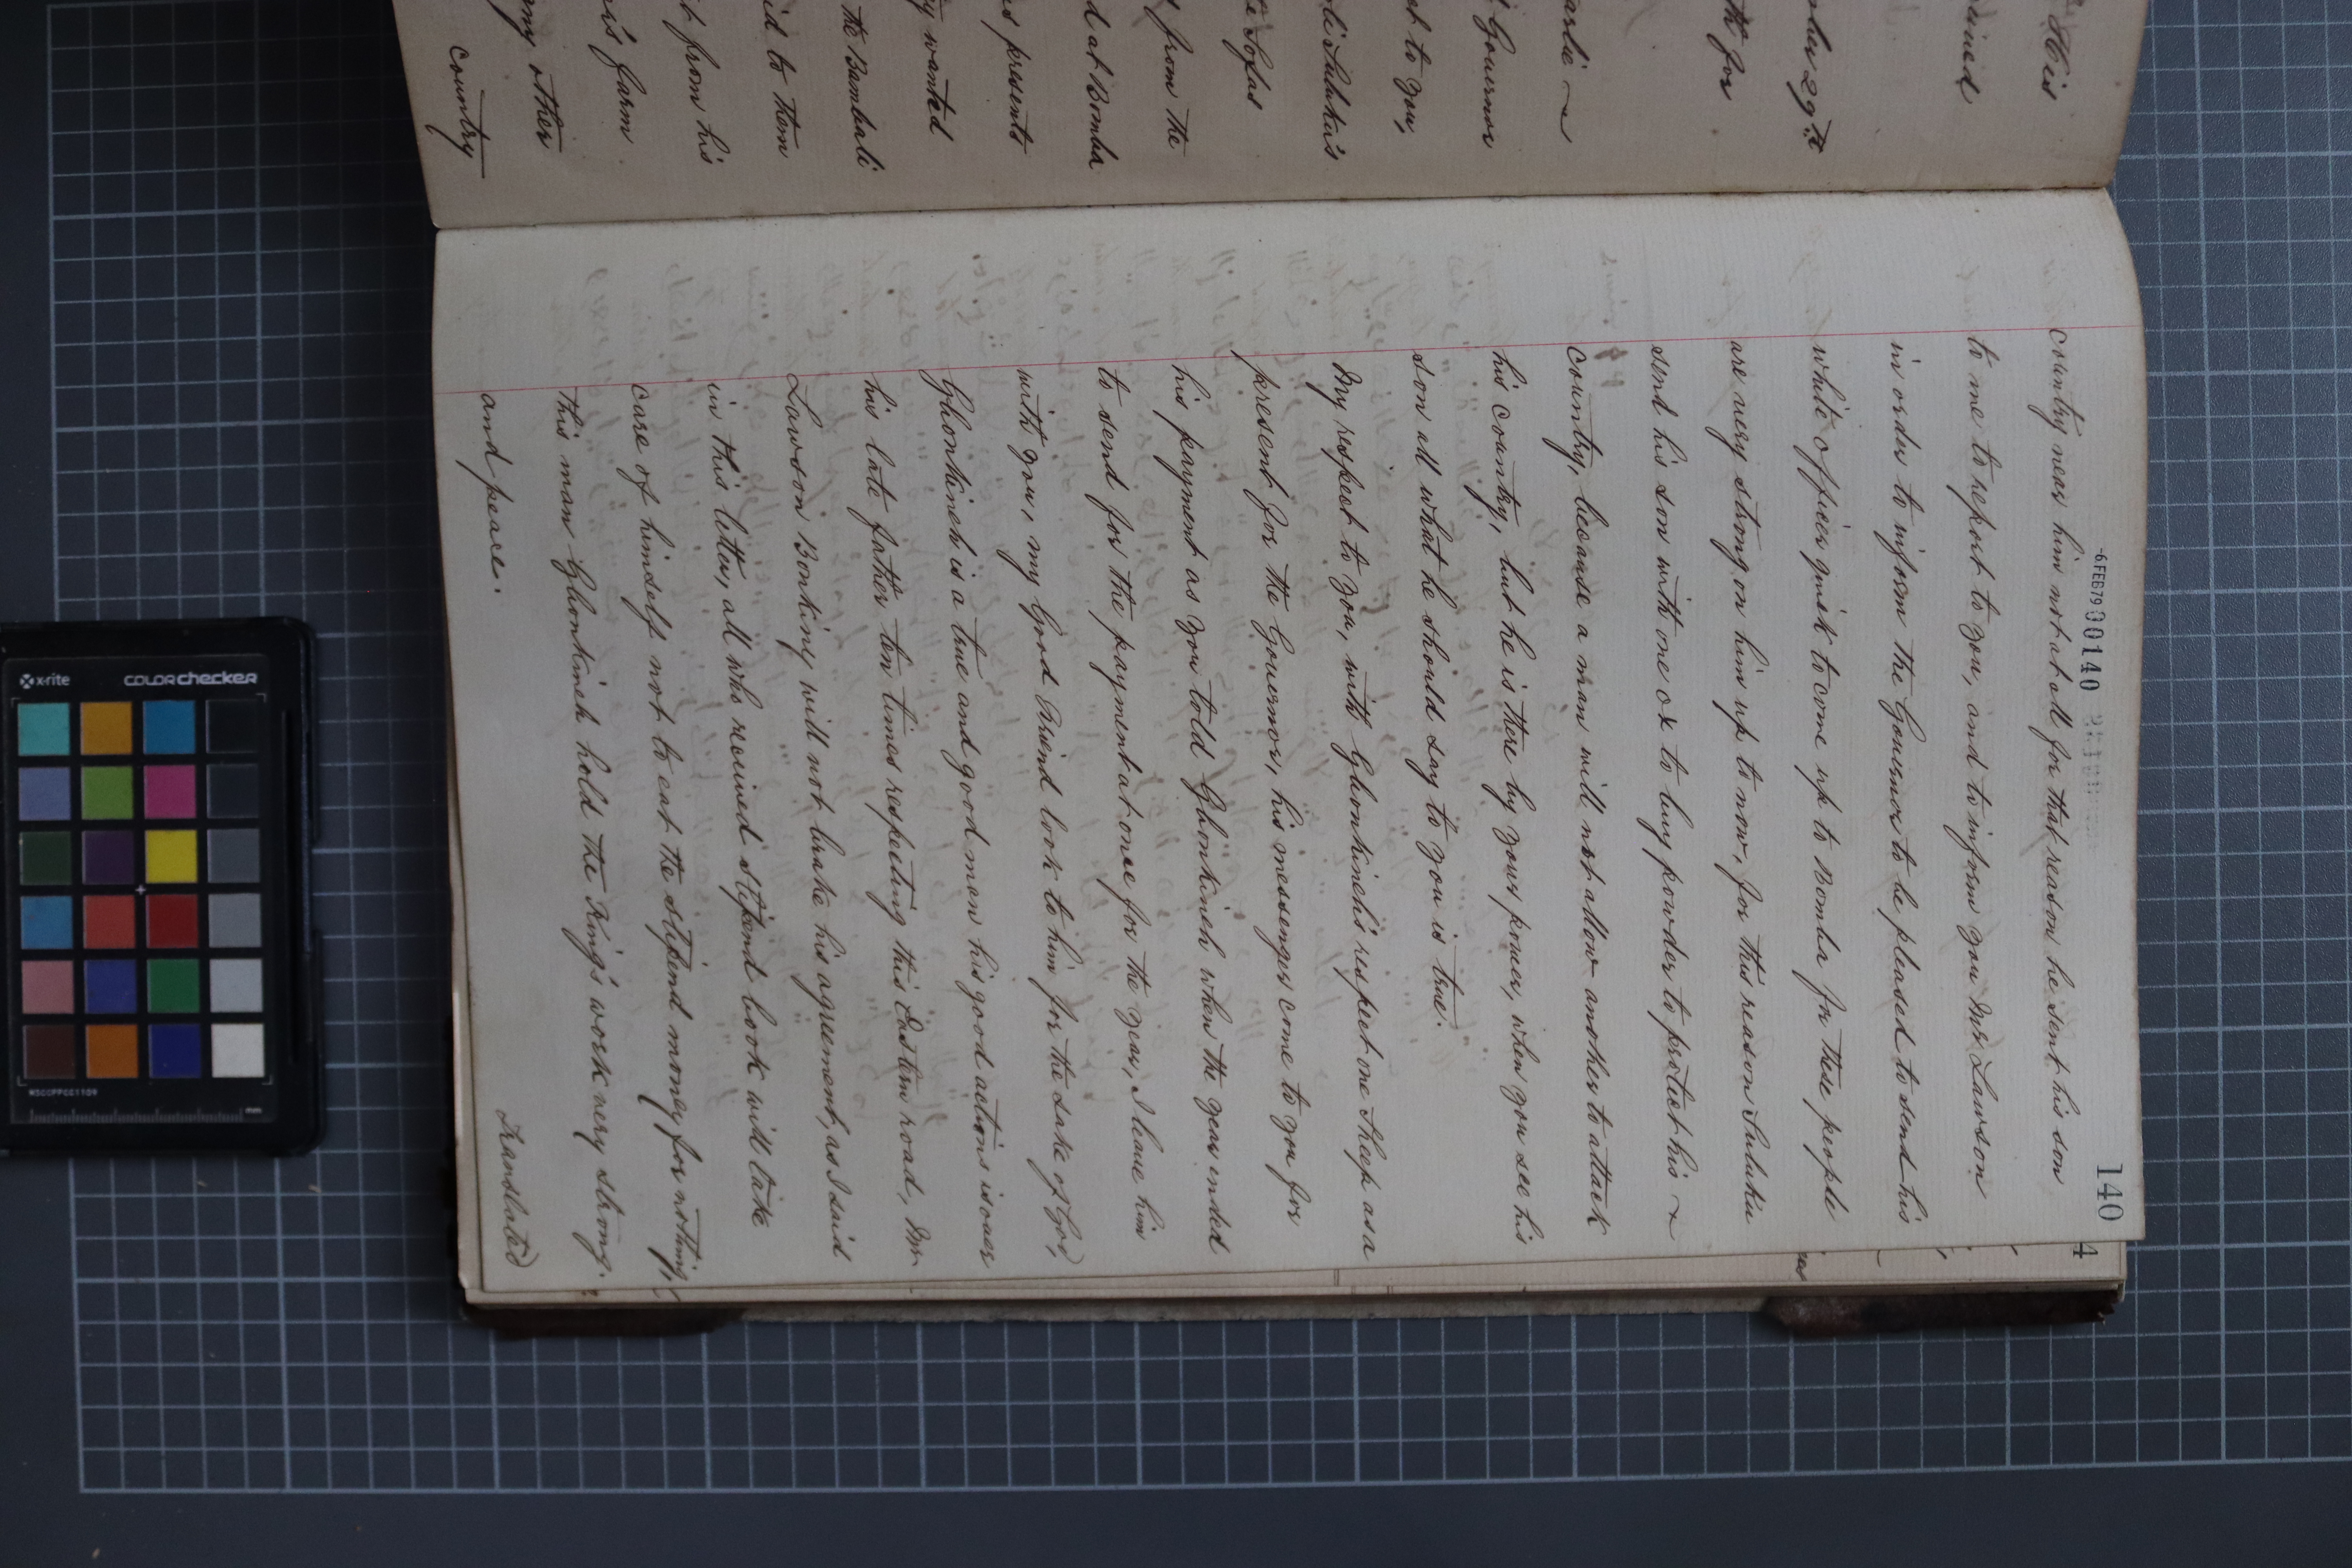 His
ember 29th
th for
arlie ~
Governor
at to you,
li Suluku's
Sofas
from the
d at Bomba
s presents
y wanted
the Bambali
id to them
t from his
is farm
ny other
country
-6 FEB 79 00140
140
4
country near him not at all for that reason he sent his son
to me to report to you, and to inform you Mr Lawson
in order to inform the Governor to be pleased to send his
white officer quick to come up to Bomba for these people
are very strong on him up to now, for this reason Suluku
send his son with one ox to buy powder to protect his ~
country, because a man will not allow another to attack
his country, but he is there by your power, when you see his
son all what he should say to you is true.
My respect to you, with Gbonkineh's respect one sheep as a
present for the Governor, his messenger come to you for
his payment as you told Gbonkineh when the year ended
to send for the payment at once for the year, I leave him
with you, my Good Friend look to him for the sake of God,
Gbonkineh is a true and good man his good actions is over
his late father ten times respecting this Eastern road, Mr.
Lawson Bonking will not brake his agreement, as I said
in this letter, all who received stipend book will take
care of himself not to eat the stipend money for nothing,
this man Gbonkineh hold the King's work very strong.
and peace.
Translated
x-rite COLORchecker
MSCCPPCC1109
mm